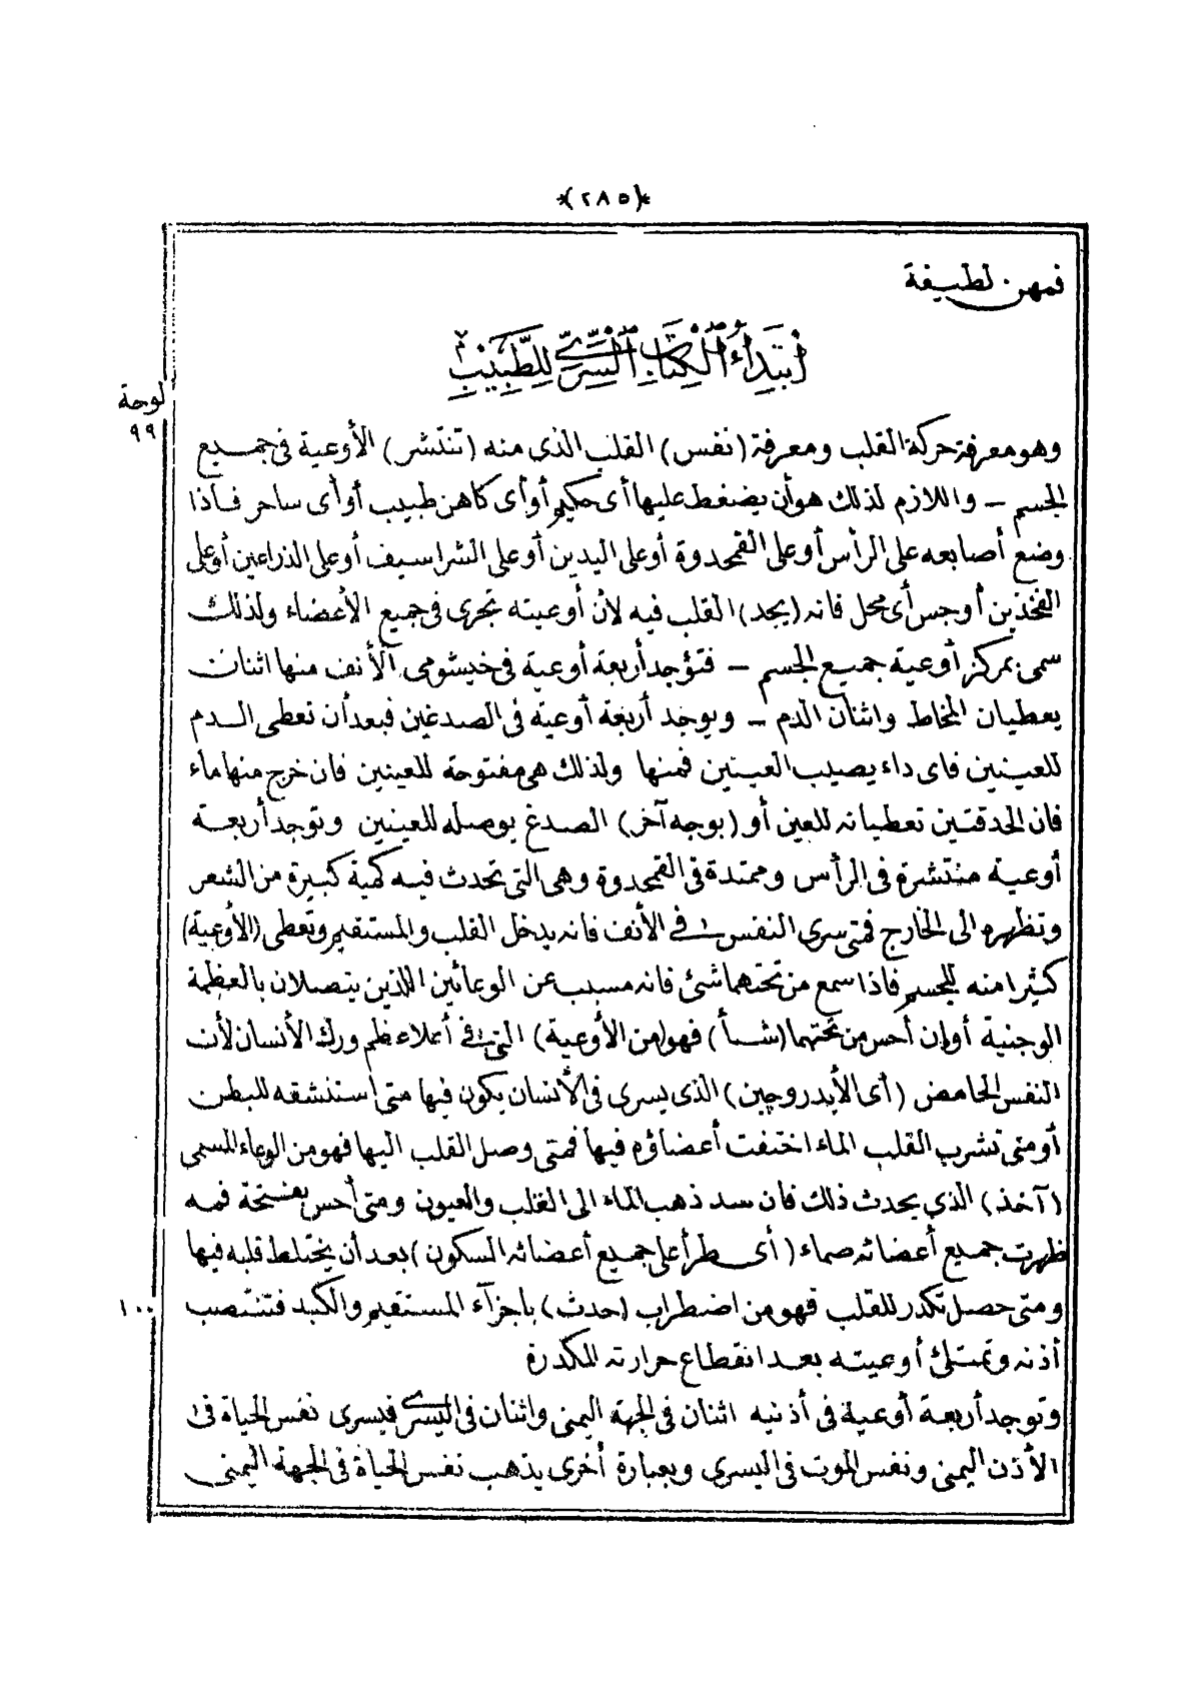 *(٢٨٥)*
فمهن لطيفة
ابتداء الكتاب السرى للطبيب
لوحة
٩٩
وهو معرفة حركة القلب ومعرفة (نفس) القلب الذى منه (تنتشر) الأوعية فى جميع
الجسم – واللازم لذلك هو أن يضغط عليها أى حكيم أو أى كاهن طبيب أو أى ساحر فاذا
وضع أصابعه على الرأس أو على القمحدوة أو على اليدين أو على الشراسيف أو على الذراعين أو على
الفخذين أو جس أى محل فانه (يجد) القلب فيه لأن أوعيته تجرى فى جميع الأعضاء ولذلك
سمى بمركز أوعية جميع الجسم – فتوجد أربعة أوعية فى خيشومى الأنف منها اثنان
يعطيان المخاط واثنان الدم – ويوجد أربعة أوعية فى الصدغين فبعد أن تعطى الدم
للعينين فاى داء يصيب العينين فمنها ولذلك هى مفتوحة للعينين فان خرج منها ماء
فان الحدقتين تعطيانه للعين أو (بوجه آخر) الصدغ يوصله للعينين وتوجد أربعة
أوعية منتشرة فى الرأس وممتدة فى القمحدوة وهى التى تحدث فيه كمية كبيرة من الشعر
وتظهره الى الخارج فمتى سرى النفس فى الأنف فانه يدخل القلب والمستقيم وتعطى (الأوعية)
كثيرا منه للجسم فاذا سمع من تحتهما شئ فانه مسبب عن الوعائين اللذين يتصلان بالعظمة
الوجنية أو ان أحس من تحتهما (شيأ) فهو (من الأوعية) التى فى أعلاء ورك الأنسان لأن
النفس الحامض (أى الأيدروجين) الذى يسرى فى الأنسان يكون فيها متى استنشقه للبطن
أو متى تشرب القلب الماء اختفت أعضاؤه فيها فمتى وصل القلب اليها فهو من الوعاء المسمى
(آخذ) الذي يحدث ذلك فان سد ذهب الماء الى القلب والعيون ومتى أحس بفتحة فمه
ظهرت جميع أعضائه صماء (أى طرأ على جميع أعضائه السكون) بعد أن يختلط قلبه فيها
١٠٠
ومتى حصل تكدر للقلب فهو من اضطراب (حدث) باجزآء المستقيم والكبد فتنتصب
أذنه وتمتلئ أوعيته بعد انقطاع حرارته المكدرة
وتوجد أربعة أوعية فى أذنيه اثنان فى الجهة اليمنى واثنان فى اليسرى فيسرى نفس الحياة فى
الأذن اليمنى ونفس الموت فى اليسرى وبعبارة أخرى يذهب نفس الحياة فى الجهة اليمنى